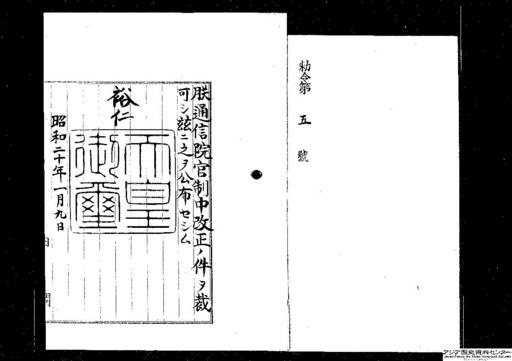 勅令第五號
朕通信院官制中改正ノ件ヲ裁
可シ玆ニ之ヲ公布セシム
裕仁
天皇御璽
昭和二十年一月九日
アジア歴史資料センター